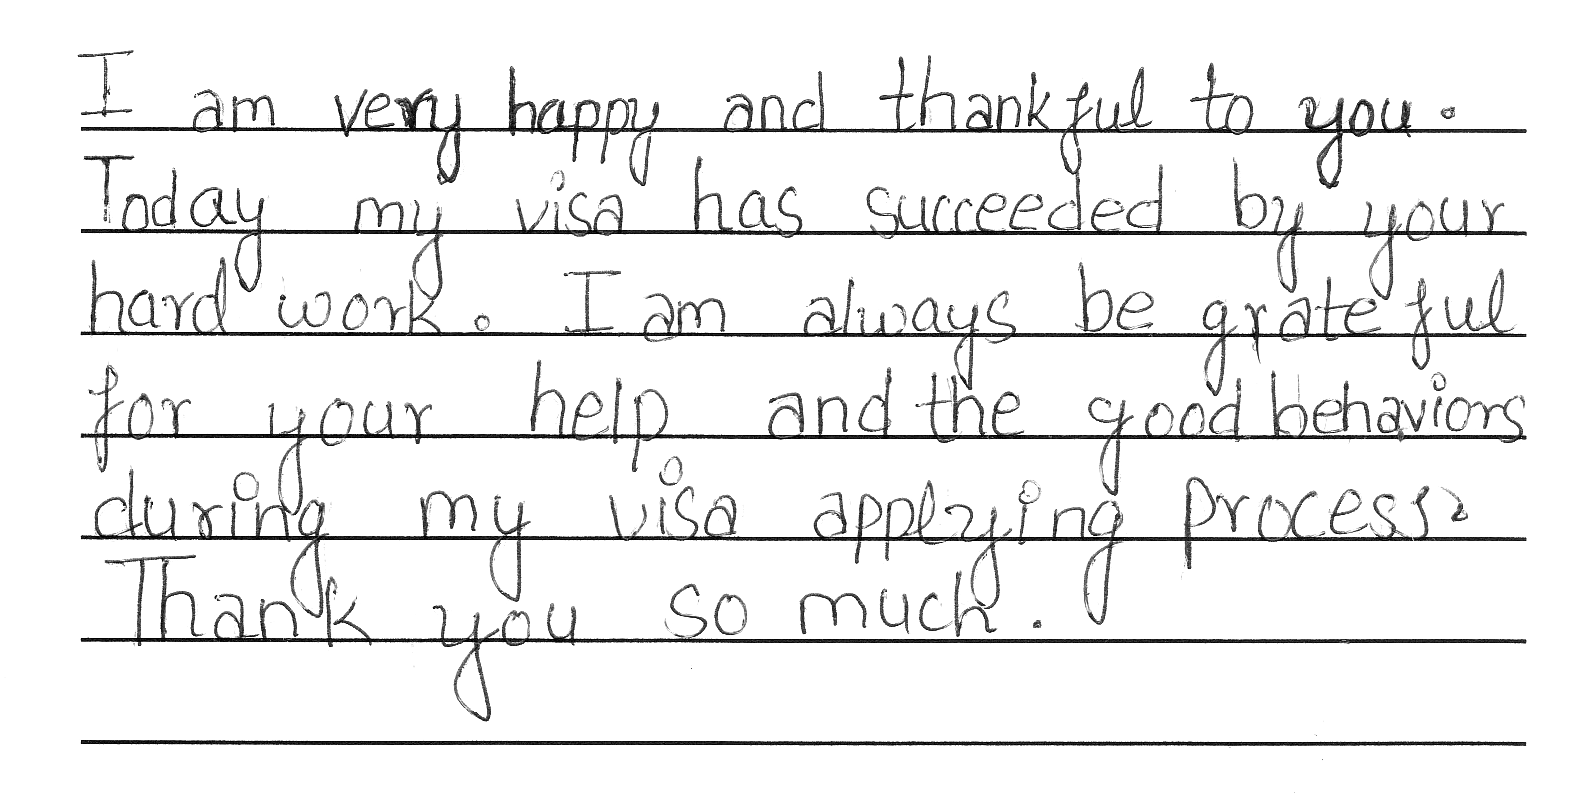 I am very happy and thankful to you.
Today my visa has succeeded by your
hard work. I am always be grateful
for your help and the good behaviors
during my visa applying process.
Thank you so much.